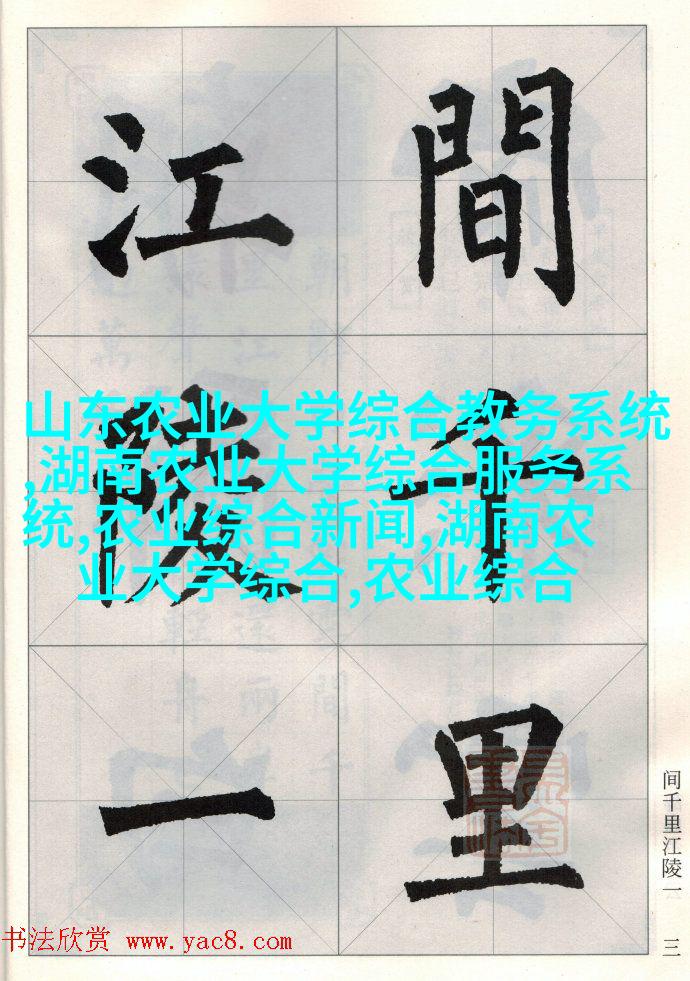 間千里
江陵一
山东农业大学综合教务系统
,湖南农业大学综合服务系
统,农业综合新闻,湖南农
业大学综合,农业综合
间千里江陵一 三
书法欣赏 www.yac8.com